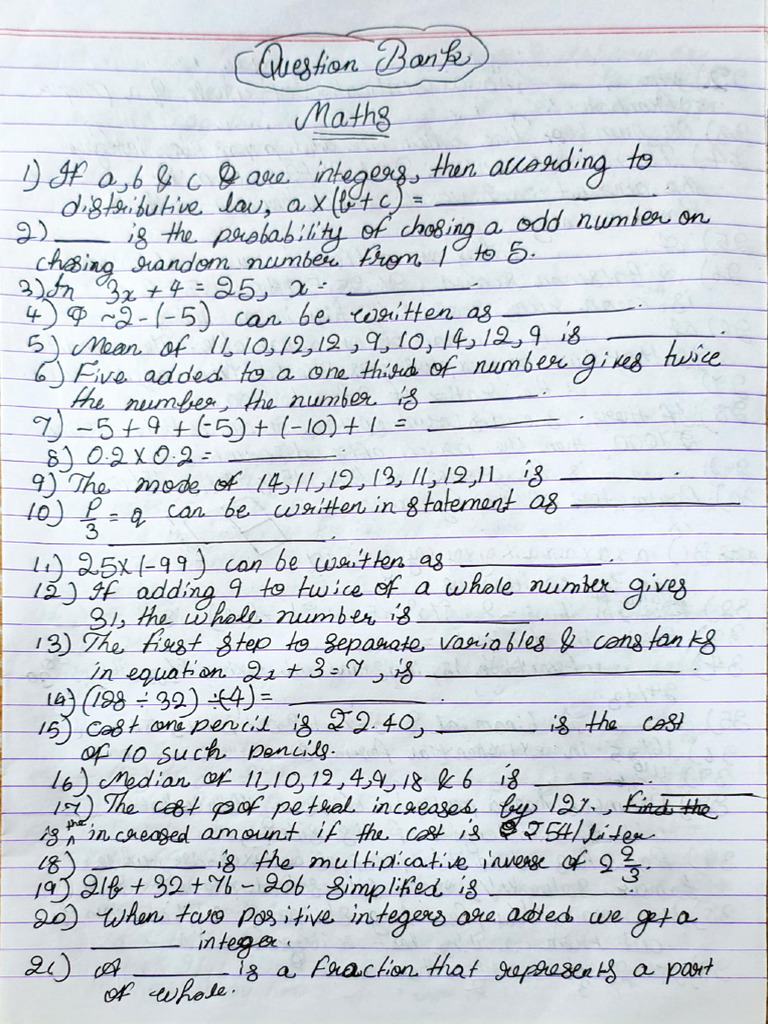 Question Bank
Maths
1) If a, b & c are integers, then according to
distributive law, a x (b + c) = ________
2) ____ is the probability of chosing a odd number on
chosing random number from 1 to 5.
3) In 3x + 4 = 25, x = ________.
4) ~2-(-5) can be written as ________.
5) Mean of 11, 10, 12, 12, 9, 10, 14, 12, 9 is ________.
6) Five added to a one third of number gives twice
the number, the number is ________.
7) -5 + 9 + (-5) + (-10) + 1 = ________.
8) 0.2 x 0.2 = ________
9) The mode of 14, 11, 12, 13, 11, 12, 11 is ________.
10) p/3 = q can be written in statement as ________
________.
11) 25x(-99) can be written as ________.
12) If adding 9 to twice of a whole number gives
31, the whole number is ________.
13) The first step to separate variables & constants
in equation 2x + 3 = 7, is ________.
14) (128 ÷ 32) ÷(4) = ________.
15) Cost one pencil is ₹2.40, ________ is the cost
of 10 such pencils.
16) Median of 11, 10, 12, 4, 9, 18 & 6 is ________.
17) The cost of petrol increases by 12%, find the ________
is the increased amount if the cost is ₹54/liter
18) ________ is the multiplicative inverse of 2 2/3.
19) 21b + 32 + 7b - 20b simplified is ________.
20) When two positive integers are added we get a
________ integer.
21) A ________ is a fraction that represents a part
of whole.